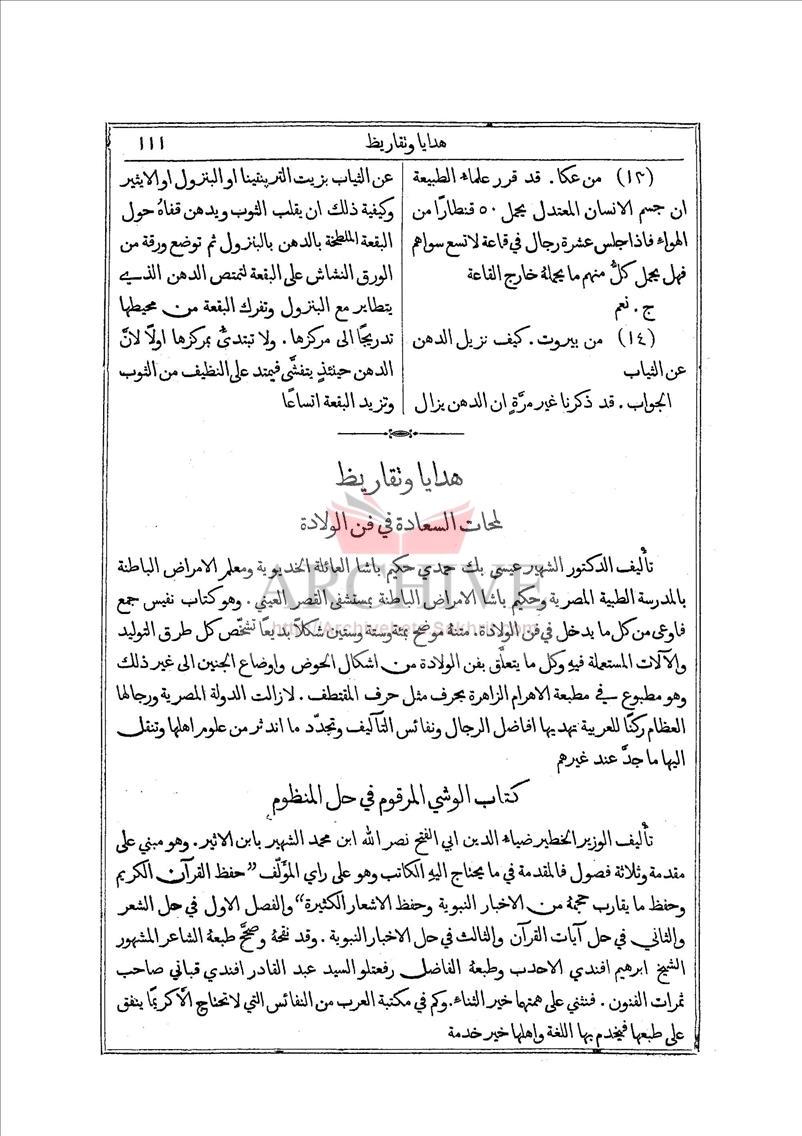 هدايا وتقاريظ
١١١
(١٣) من عكا. قد قرر علماء الطبيعة
ان جسم الانسان المعتدل يحمل ٥٠ قنطارًا من
الهواء فاذا جلس عشرة رجال في قاعة لا تسع سواهم
فهل يحمل كلٌّ منهم ما يحملهُ خارج القاعة
ج. نعم
(١٤) من بيروت. كيف نزيل الدهن
عن الثياب
الجواب. قد ذكرنا غير مرَّةٍ ان الدهن يزال
عن الثياب بزيت التربنتينا او البنزول او الايثير
وكيفية ذلك ان يقلب الثوب ويدهن قفاهُ حول
البقعة الملطخة بالدهن بالبنزول ثم توضع ورقة من
الورق النشاش على البقعة لتمتص الدهن الذي
يتطاير مع البنزول وتفرك البقعة من محيطها
تدريجًا الى مركزها. ولا تبتدئُ بمركزها اولًا لانَّ
الدهن حينئذٍ يتفشَّى فيمتد على النظيف من الثوب
وتزيد البقعة اتساعًا
هدايا وتقاريظ
لمحات السعادة في فن الولادة
تأليف الدكتور الشهير عيسى بك حمدي حكيم باشا العائلة الخديوية ومعلم الامراض الباطنة
بالمدرسة الطبية المصرية وحكيم باشا الامراض الباطنة بمستشفى القصر العيني. وهو كتاب نفيس جمع
فاوعى من كل ما يدخل في فن الولادة. متنهُ موضح بمئة وستة وستين شكلًا بديعًا تشخّص كل طرق التوليد
والآلات المستعملة فيهِ وكل ما يتعلَّق بفن الولادة من اشكال الحوض واوضاع الجنين الى غير ذلك
وهو مطبوع في مطبعة الاهرام الزاهرة بحرف مثل حرف المقتطف. لازالت الدولة المصرية ورجالها
العظام ركنًا للعربية يهديها افاضل الرجال ونفائس التآليف وتجدّد ما اندثر من علوم اهلها وتنقل
اليها ما جدَّ عند غيرهم
كتاب الوشي المرقوم في حل المنظوم
تأليف الوزير الخطير ضياء الدين ابي الفتح نصر الله ابن محمد الشهير بابن الاثير. وهو مبني على
مقدمة وثلاثة فصول فالمقدمة في ما يحتاج اليهِ الكاتب وهو على راي المؤَلّف "حفظ القرآن الكريم
وحفظ ما يقارب حجمهُ من الاخبار النبوية وحفظ الاشعار الكثيرة" والفصل الاول في حل الشعر
والثاني في حل آيات القرآن والثالث في حل الاخبار النبوية. وقد نقحهُ وصحَّح طبعهُ الشاعر المشهور
الشيخ ابرهيم افندي الاحدب وطبعهُ الفاضل رفعتلو السيد عبد القادر افندي قباني صاحب
ثمرات الفنون. فنثني على همتها خير الثناء. وكم في مكتبة العرب من النفائس التي لا تحتاج الَّا كريمًا ينفق
على طبعها فيخدم بها اللغة واهلها خير خدمة
ARCHIVE
http://Archivebeta.Sakhrit.com